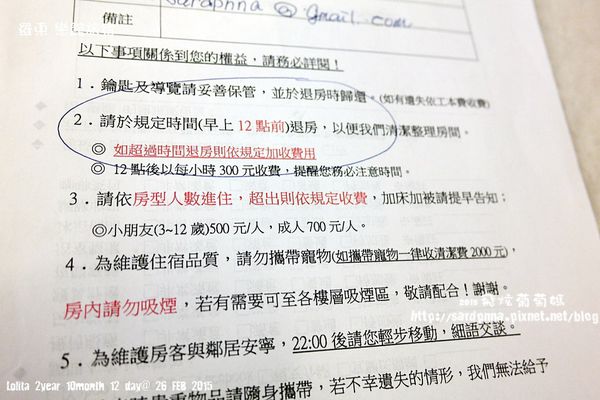 備註
sardpnna @ gmail.com
以下事項關係到您的權益，請務必詳閱！
1．鑰匙及導覽請妥善保管，並於退房時歸還。(如有遺失依工本費收費)
2．請於規定時間(早上 12 點前)退房，以便我們清潔整理房間。
◎ 如超過時間退房則依規定加收費用
◎ 12 點後以每小時 300 元收費，提醒您務必注意時間。
3．請依房型人數進住，超出則依規定收費，加床加被請提早告知；
◎小朋友(3~12 歲)500 元/人，成人 700 元/人。
4．為維護住宿品質，請勿攜帶寵物(如攜帶寵物一律收清潔費 2000 元)，
房內請勿吸煙，若有需要可至各樓層吸煙區，敬請配合！謝謝。
5．為維護房客與鄰居安寧，22:00 後請您輕步移動，細語交談。
貴重物品請隨身攜帶，若不幸遺失的情形，我們無法給予
http://sardpnna.pixnet.net/blog
Lolita 2year 10month 12 day@ 26 FEB 2015